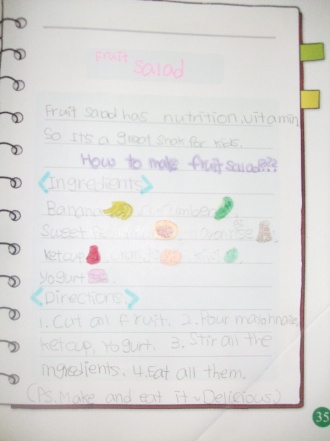 Fruit Salad
Fruit Salad has nutrition, vitamin
So its a great snak for kids.
How to make fruit salad???
<Ingredients>
Banana cucumber
Sweet
Ketcup
yogurt .
<Directions>
1. Cut all Fruit. 2. Pour mayonnaise
Ketcup, Yogurt. 3. Stir all the
Ingredients. 4. Eat all them.
(PS. Make and eat it Delicious)
35